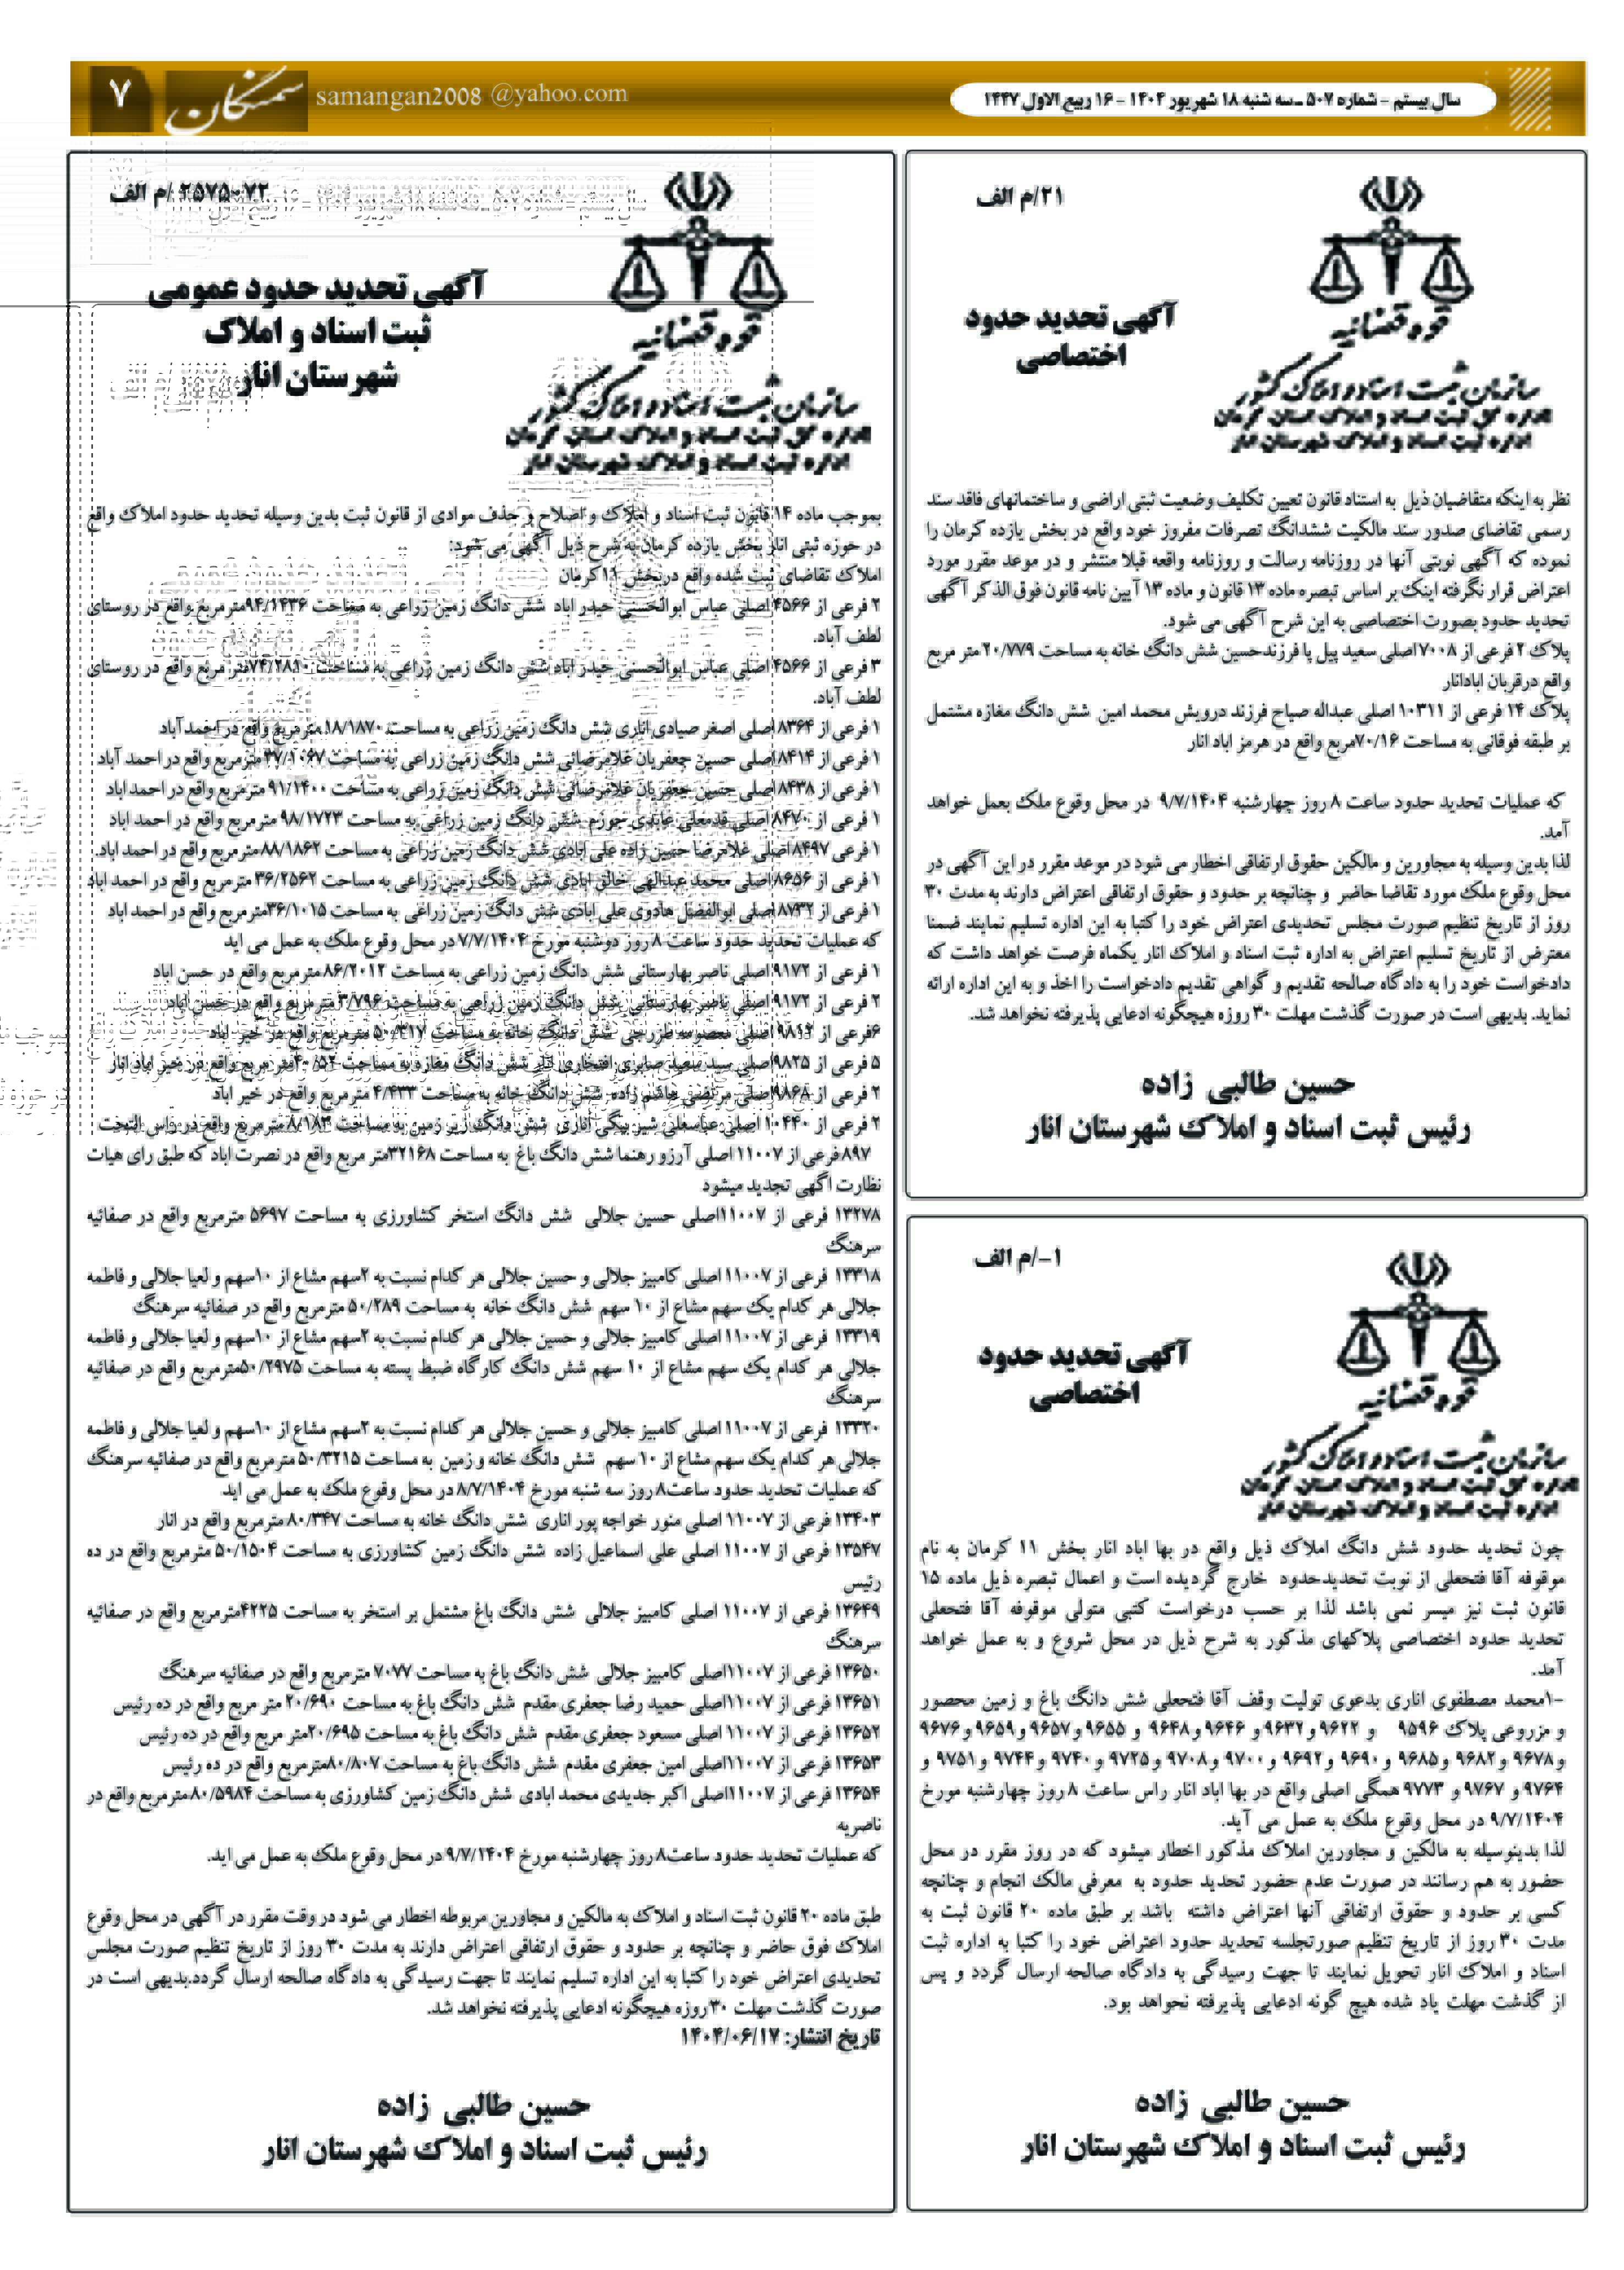 سال بیستم - شماره ۵۰۷ ـ سه شنبه ۱۸ شهریور ۱۴۰۴ - ۱۶ ربیع الاول ۱۴۴۷
samangan2008 @yahoo.com
سمنگان
۷
۲۱/م الف
قوه قضائیه
سازمان ثبت اسناد و املاک کشور
اداره کل ثبت اسناد و املاک استان کرمان
اداره ثبت اسناد و املاک شهرستان انار
آگهی تحدید حدود
اختصاصی
نظر به اینکه متقاضیان ذیل به استناد قانون تعیین تکلیف وضعیت ثبتی اراضی و ساختمانهای فاقد سند
رسمی تقاضای صدور سند مالکیت ششدانگ تصرفات مفروز خود واقع در بخش یازده کرمان را
نموده که آگهی نوبتی آنها در روزنامه رسالت و روزنامه واقعه قبلا منتشر و در موعد مقرر مورد
اعتراض قرار نگرفته اینک بر اساس تبصره ماده ۱۳ قانون و ماده ۱۳ آیین نامه قانون فوق الذکر آگهی
تحدید حدود بصورت اختصاصی به این شرح آگهی می شود.
پلاک ۲ فرعی از ۷۰۰۸ اصلی سعید پیل پا فرزندحسین شش دانگ خانه به مساحت ۲۰/۷۷۹ متر مربع
واقع درقربان ابادانار
پلاک ۱۴ فرعی از ۱۰۳۱۱ اصلی عبداله صیاح فرزند درویش محمد امین شش دانگ مغازه مشتمل
بر طبقه فوقانی به مساحت ۷۰/۱۶مربع واقع در هرمز اباد انار
که عملیات تحدید حدود ساعت ۸ روز چهارشنبه ۹/۷/۱۴۰۴ در محل وقوع ملک بعمل خواهد
آمد.
لذا بدین وسیله به مجاورین و مالکین حقوق ارتفاقی اخطار می شود در موعد مقرر در این آگهی در
محل وقوع ملک مورد تقاضا حاضر و چنانچه بر حدود و حقوق ارتفاقی اعتراض دارند به مدت ۳۰
روز از تاریخ تنظیم صورت مجلس تحدیدی اعتراض خود را کتبا به این اداره تسلیم نمایند ضمنا
معترض از تاریخ تسلیم اعتراض به اداره ثبت اسناد و املاک انار یکماه فرصت خواهد داشت که
دادخواست خود را به دادگاه صالحه تقدیم و گواهی تقدیم دادخواست را اخذ و به این اداره ارائه
نماید. بدیهی است در صورت گذشت مهلت ۳۰ روزه هیچگونه ادعایی پذیرفته نخواهد شد.
حسین طالبی زاده
رئیس ثبت اسناد و املاک شهرستان انار
۱-/م الف
قوه قضائیه
سازمان ثبت اسناد و املاک کشور
اداره کل ثبت اسناد و املاک استان کرمان
اداره ثبت اسناد و املاک شهرستان انار
آگهی تحدید حدود
اختصاصی
چون تحدید حدود شش دانگ املاک ذیل واقع در بها اباد انار بخش ۱۱ کرمان به نام
موقوفه آقا فتحعلی از نوبت تحدیدحدود خارج گردیده است و اعمال تبصره ذیل ماده ۱۵
قانون ثبت نیز میسر نمی باشد لذا بر حسب درخواست کتبی متولی موقوفه آقا فتحعلی
تحدید حدود اختصاصی پلاکهای مذکور به شرح ذیل در محل شروع و به عمل خواهد
آمد.
-۱محمد مصطفوی اناری بدعوی تولیت وقف آقا فتحعلی شش دانگ باغ و زمین محصور
و مزروعی پلاک ۹۵۹۶ و ۹۶۲۲ و۹۶۳۲ و ۹۶۴۶ و۹۶۴۸ و ۹۶۵۵ و۹۶۵۷ و۹۶۵۹ و ۹۶۷۶
و۹۶۷۸ و ۹۶۸۲ و۹۶۸۵ و ۹۶۹۰ و۹۶۹۲ و ۹۷۰۰ و۹۷۰۸ و ۹۷۲۵ و ۹۷۴۰ و ۹۷۴۴ و ۹۷۵۱ و
۹۷۶۴ و ۹۷۶۷ و ۹۷۷۳ همگی اصلی واقع در بها اباد انار راس ساعت ۸ روز چهارشنبه مورخ
۹/۷/۱۴۰۴ در محل وقوع ملک به عمل می آید.
لذا بدینوسیله به مالکین و مجاورین املاک مذکور اخطار میشود که در روز مقرر در محل
حضور به هم رسانند در صورت عدم حضور تحدید حدود به معرفی مالک انجام و چنانچه
کسی بر حدود و حقوق ارتفاقی آنها اعتراض داشته باشد بر طبق ماده ۲۰ قانون ثبت به
مدت ۳۰ روز از تاریخ تنظیم صورتجلسه تحدید حدود اعتراض خود را کتبا به اداره ثبت
اسناد و املاک انار تحویل نمایند تا جهت رسیدگی به دادگاه صالحه ارسال گردد و پس
از گذشت مهلت یاد شده هیچ گونه ادعایی پذیرفته نخواهد بود.
حسین طالبی زاده
رئیس ثبت اسناد و املاک شهرستان انار
/م الف
قوه قضائیه
سازمان ثبت اسناد و املاک کشور
اداره کل ثبت اسناد و املاک استان کرمان
اداره ثبت اسناد و املاک شهرستان انار
آگهی تحدید حدود عمومی
ثبت اسناد و املاک
شهرستان انار
بموجب ماده ۱۴ قانون ثبت اسناد و املاک و اصلاح و حذف موادی از قانون ثبت بدین وسیله تحدید حدود املاک واقع
در حوزه ثبتی انار بخش یازده کرمان به شرح ذیل آگهی می شود:
املاک تقاضای ثبت شده واقع دربخش ۱۱کرمان
۲ فرعی از ۴۵۶۶ اصلی عباس ابوالحسنی حیدر اباد شش دانگ زمین زراعی به مساحت ۹۴/۱۴۳۶مترمربع واقع در روستای
لطف آباد.
۳ فرعی از ۴۵۶۶ اصلی عباس ابوالحسنی حیدر اباد شش دانگ زمین زراعی به مساحت ۷۴/۲۸۱۰متر مربع واقع در روستای
لطف آباد.
۱ فرعی از ۸۳۶۴ اصلی اصغر صیادی اناری شش دانگ زمین زراعی به مساحت ۱۸/۱۸۷۰ مترمربع واقع در احمد آباد
۱ فرعی از ۸۴۱۴ اصلی حسین جعفریان غلامرضائی شش دانگ زمین زراعی به مساحت ۳۷/۱۰۶۷مترمربع واقع در احمد آباد
۱ فرعی از ۸۴۳۸ اصلی حسین جعفریان غلامرضائی شش دانگ زمین زراعی به مساحت ۹۱/۱۴۰۰ مترمربع واقع در احمد اباد
۱ فرعی از ۸۴۷۰ اصلی قدمعلی عابدی جوزم شش دانگ زمین زراعی به مساحت ۹۸/۱۷۲۳ مترمربع واقع در احمد اباد
۱ فرعی ۸۴۹۷ اصلی غلامرضا حسین زاده علی ابادی شش دانگ زمین زراعی به مساحت ۸۸/۱۸۶۲مترمربع واقع در احمد اباد.
۱ فرعی از ۸۶۵۶ اصلی محمد عبدالهی خالق ابادی شش دانگ زمین زراعی به مساحت ۳۶/۲۵۶۲ مترمربع واقع در احمد اباد
۱ فرعی از اصلی ابوالفضل هادوی علی ابادی شش دانگ زمین زراعی به مساحت ۳۶/۱۰۱۵مترمربع واقع در احمد اباد
که عملیات تحدید حدود ساعت ۸ روز دوشنبه مورخ ۷/۷/۱۴۰۴ در محل وقوع ملک به عمل می اید
۱ فرعی از ۹۱۷۲ اصلی ناصر بهارستانی شش دانگ زمین زراعی به مساحت ۸۶/۲۰۱۲مترمربع واقع در حسن اباد
۲ فرعی از ۹۱۷۲ اصلی ناصر بهارستانی شش دانگ زمین زراعی به مساحت ۳/۷۹۶ مترمربع واقع در حسن اباد
۶فرعی از اصلی معصومه طزرجی شش دانگ خانه به مساحت ۵۰/۳۱۷ متر مربع واقع در خیر اباد
۵ فرعی از ۹۸۲۵ اصلی سید سعید صابری افتخاری شش دانگ مغازه به مساحت ۴۰/۵۲متر مربع واقع در خیر اباد انار
۲ فرعی از ۹۸۶۸ اصلی مرتضی هاشم زاده شش دانگ خانه به مساحت ۴/۴۳۳ مترمربع واقع در خیر اباد
۲ فرعی از ۱۰۴۴۰ اصلی عباسعلی شیر بیگی اناری شش دانگ زیر زمین به مساحت ۸/۱۸۳مترمربع واقع در راس التخت
۸۹۷فرعی از ۱۱۰۰۷ اصلی آرزو رهنما شش دانگ باغ به مساحت ۳۲۱۶۸متر مربع واقع در نصرت اباد که طبق رای هیات
نظارت اگهی تجدید میشود
۱۳۲۷۸ فرعی از ۱۱۰۰۷اصلی حسین جلالی شش دانگ استخر کشاورزی به مساحت ۵۶۹۷ مترمربع واقع در صفائیه
سرهنگ
۱۳۳۱۸ فرعی از ۱۱۰۰۷ اصلی کامبیز جلالی و حسین جلالی هر کدام نسبت به ۲سهم مشاع از ۱۰سهم و لعیا جلالی و فاطمه
جلالی هر کدام یک سهم مشاع از ۱۰ سهم شش دانگ خانه به مساحت ۵۰/۲۸۹ مترمربع واقع در صفائیه سرهنگ
۱۳۳۱۹ فرعی از ۱۱۰۰۷ اصلی کامبیز جلالی و حسین جلالی هر کدام نسبت به ۲سهم مشاع از ۱۰سهم و لعیا جلالی و فاطمه
جلالی هر کدام یک سهم مشاع از ۱۰ سهم شش دانگ کارگاه ضبط پسته به مساحت ۵۰/۲۹۷۵مترمربع واقع در صفائیه
سرهنگ
۱۳۳۲۰ فرعی از ۱۱۰۰۷ اصلی کامبیز جلالی و حسین جلالی هر کدام نسبت به ۲سهم مشاع از ۱۰سهم و لعیا جلالی و فاطمه
جلالی هر کدام یک سهم مشاع از ۱۰ سهم شش دانگ خانه و زمین به مساحت ۵۰/۳۲۱۵مترمربع واقع در صفائیه سرهنگ
که عملیات تحدید حدود ساعت۸ روز سه شنبه مورخ ۸/۷/۱۴۰۴ در محل وقوع ملک به عمل می اید
۱۳۴۰۳ فرعی از ۱۱۰۰۷ اصلی منور خواجه پور اناری شش دانگ خانه به مساحت ۸۰/۳۴۷ مترمربع واقع در انار
۱۳۵۴۷ فرعی از ۱۱۰۰۷ اصلی علی اسماعیل زاده شش دانگ زمین کشاورزی به مساحت ۵۰/۱۵۰۴ مترمربع واقع در ده
رئیس
۱۳۶۴۹ فرعی از ۱۱۰۰۷ اصلی کامبیز جلالی شش دانگ باغ مشتمل بر استخر به مساحت ۴۲۲۵مترمربع واقع در صفائیه
سرهنگ
۱۳۶۵۰ فرعی از ۱۱۰۰۷اصلی کامبیز جلالی شش دانگ باغ به مساحت ۷۰۷۷ مترمربع واقع در صفائیه سرهنگ
۱۳۶۵۱ فرعی از ۱۱۰۰۷اصلی حمید رضا جعفری مقدم شش دانگ باغ به مساحت ۲۰/۶۹۰ متر مربع واقع در ده رئیس
۱۳۶۵۲ فرعی از ۱۱۰۰۷ اصلی مسعود جعفری مقدم شش دانگ باغ به مساحت ۲۰/۶۹۵متر مربع واقع در ده رئیس
۱۳۶۵۳ فرعی از ۱۱۰۰۷اصلی امین جعفری مقدم شش دانگ باغ به مساحت ۸۰/۸۰۷مترمربع واقع در ده رئیس
۱۳۶۵۴ فرعی از ۱۱۰۰۷اصلی اکبر جدیدی محمد ابادی شش دانگ زمین کشاورزی به مساحت ۸۰/۵۹۸۴مترمربع واقع در
ناصریه
که عملیات تحدید حدود ساعت۸ روز چهارشنبه مورخ ۹/۷/۱۴۰۴ در محل وقوع ملک به عمل می اید.
طبق ماده ۲۰ قانون ثبت اسناد و املاک به مالکین و مجاورین مربوطه اخطار می شود در وقت مقرر در آگهی در محل وقوع
املاک فوق حاضر و چنانچه بر حدود و حقوق ارتفاقی اعتراض دارند به مدت ۳۰ روز از تاریخ تنظیم صورت مجلس
تحدیدی اعتراض خود را کتبا به این اداره تسلیم نمایند تا جهت رسیدگی به دادگاه صالحه ارسال گردد.بدیهی است در
صورت گذشت مهلت ۳۰ روزه هیچگونه ادعایی پذیرفته نخواهد شد.
تاریخ انتشار: ۱۴۰۴/۰۶/۱۷
حسین طالبی زاده
رئیس ثبت اسناد و املاک شهرستان انار